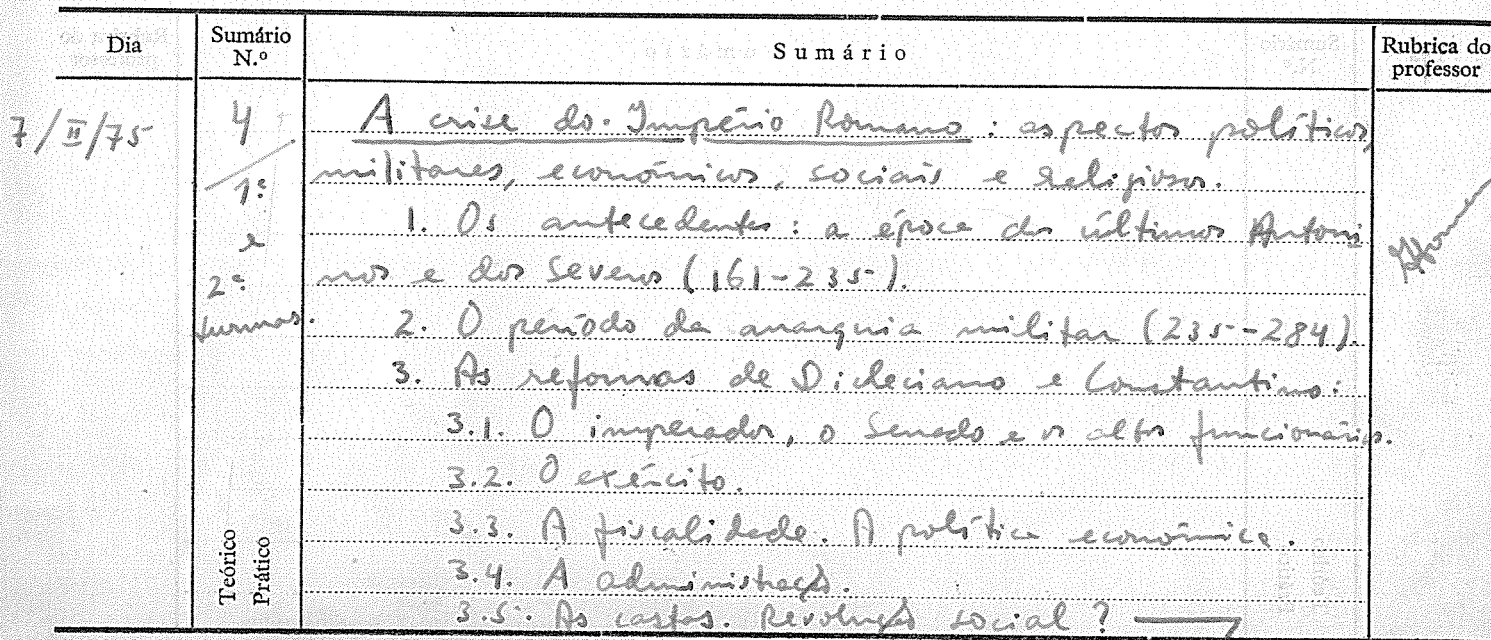 Dia
Sumário
N.º
Sumário
Rubrica do
professor
7/II/75
4
1ª
e
2ª
turmas.
A crise do Império Romano: aspectos políticos,
militares, económicos, sociais e religiosos.
1. Os antecedentes: a época dos últimos Antoni
nos e dos Severos (161-235).
2. O período da anarquia militar (235-284).
3. As reformas de Diocleciano e Constantino:
3.1. O imperador, o Senado e os altos funcionários.
3.2. O exército.
3.3. A fiscalidade. A política económica.
3.4. A administração.
3.5. As castas. Revolução social?
Teórico
Prático